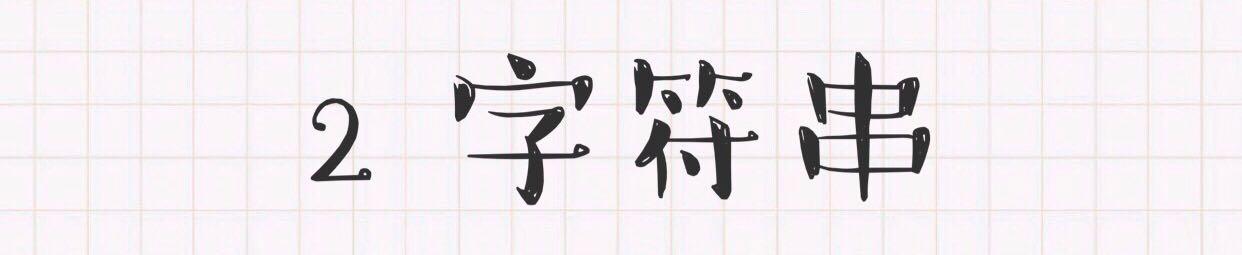 2 字符串